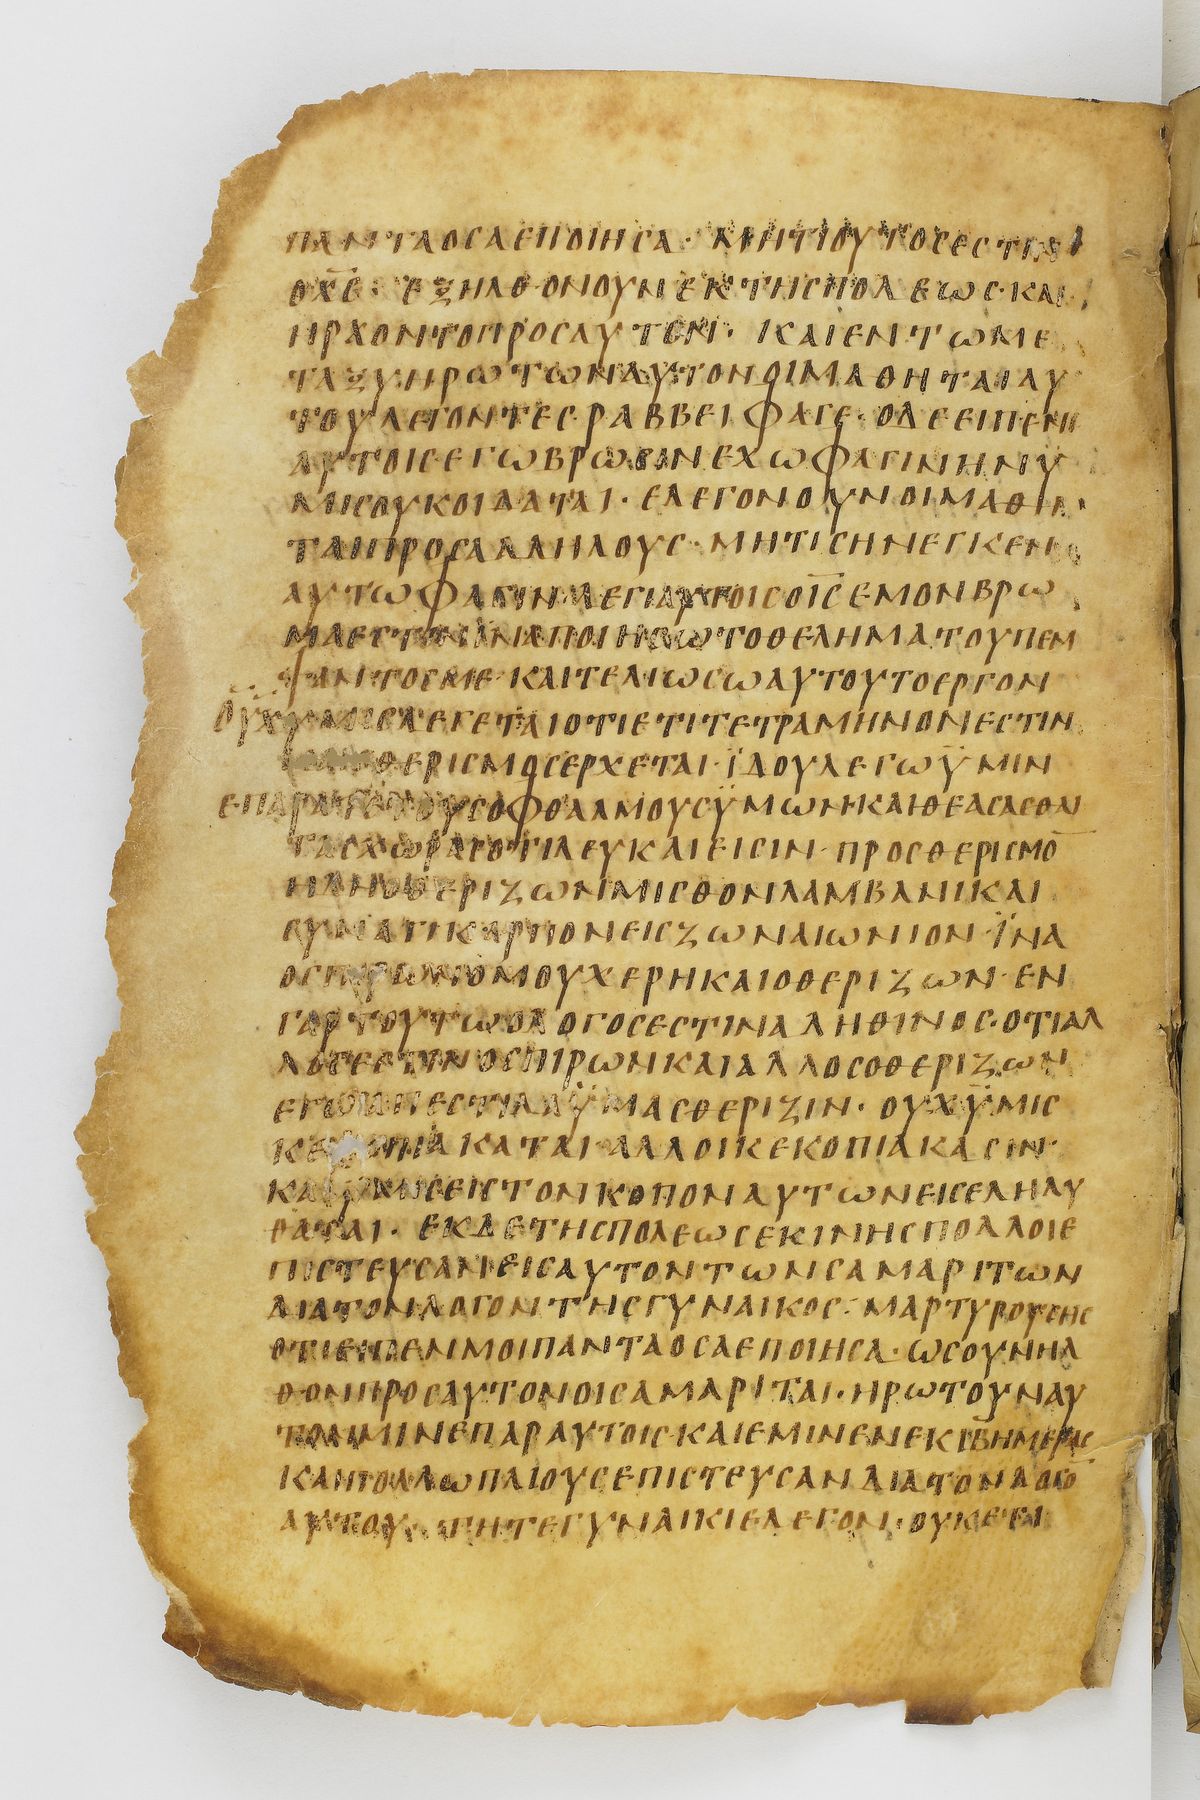 ΠΑΝΤΑΟΣΑΕΠΟΙΗΣΑ· ΜΗΤΙΟΥΤΟΣΕΣΤΙΝ
ΟΧ̅Σ̅· ΕΞΗΛΘΟΝΟΥΝΕΚΤΗΣΠΟΛΕΩΣ·ΚΑΙ
ΗΡΧΟΝΤΟΠΡΟΣΑΥΤΟΝ· ΚΑΙΕΝΤΩΜΕ
ΤΑΞΥΗΡΩΤΩΝΑΥΤΟΝΟΙΜΑΘΗΤΑΙΑΥ
ΤΟΥΛΕΓΟΝΤΕΣ·ΡΑΒΒΕΙΦΑΓΕ·ΟΔΕΕΙΠΕΝ
ΑΥΤΟΙΣ·ΕΓΩΒΡΩΣΙΝΕΧΩΦΑΓΙΝΗΝΫ
ΜΙΣΟΥΚΟΙΔΑΤΑΙ· ΕΛΕΓΟΝΟΥΝΟΙΜΑΘΗ
ΤΑΙΠΡΟΣΑΛΛΗΛΟΥΣ·ΜΗΤΙΣΗΝΕΓΚΕΝ
ΑΥΤΩΦΑΓΙΝ·ΛΕΓΙΑΥΤΟΙΣΟΙ̅Σ̅ΕΜΟΝΒΡΩ
ΜΑΕΣΤΙΝΙΝΑΠΟΙΗΣΩΤΟΘΕΛΗΜΑΤΟΥΠΕΜ
ΨΑΝΤΟΣΜΕ·ΚΑΙΤΕΛΙΩΣΩΑΥΤΟΥΤΟΕΡΓΟΝ
ΟΥΧΫΜΙΣΛΕΓΕΤΑΙΟΤΙΕΤΙΤΕΤΡΑΜΗΝΟΝΕΣΤΙΝ
ΘΕΡΙΣΜΟΣΕΡΧΕΤΑΙ·ΪΔΟΥΛΕΓΩΫΜΙΝ
Ε·ΠΑΡΑΤΕΤΟΥΣΟΦΘΑΛΜΟΥΣΫΜΩΝ·ΚΑΙΘΕΑΣΑΣΘΑΙ
ΤΑΣΧΩΡΑΣΟΤΙΛΕΥΚΑΙΕΙΣΙΝ·ΠΡΟΣΘΕΡΙΣΜΟ̅
ΗΔΗΟΘΕΡΙΖΩΝΜΙΣΘΟΝΛΑΜΒΑΝΙΚΑΙ
ΣΥΝΑΓΙΚΑΡΠΟΝΕΙΣΖΩΝΑΙΩΝΙΟΝ·ΪΝΑ
ΟΣΠΙΡΩΝΟΜΟΥΧΕΡΗΚΑΙΟΘΕΡΙΖΩΝ·ΕΝ
ΓΑΡΤΟΥΤΩΟΛΟΓΟΣΕΣΤΙΝΑΛΗΘΙΝΟΣ·ΟΤΙΑΛ
ΛΟΣΕΣΤΙΝΟΣΠΙΡΩΝΚΑΙΑΛΛΟΣΟΘΕΡΙΖΩΝ
ΕΓΩΑΠΕΣΤΙΛΑΫΜΑΣΘΕΡΙΖΙΝ· ΟΥΧΫΜΙΣ
ΚΕΚΟΠΙΑΚΑΤΑΙ·ΑΛΛΟΙΚΕΚΟΠΙΑΚΑΣΙΝ·
ΚΑΙΫΜΙΣΕΙΣΤΟΝΚΟΠΟΝΑΥΤΩΝΕΙΣΕΛΗΛΥ
ΘΑΤΑΙ· ΕΚΔΕΤΗΣΠΟΛΕΩΣΕΚΙΝΗΣΠΟΛΛΟΙΕ
ΠΙΣΤΕΥΣΑΝΕΙΣΑΥΤΟΝΤΩΝΣΑΜΑΡΙΤΩΝ
ΔΙΑΤΟΝΛΟΓΟΝΤΗΣΓΥΝΑΙΚΟΣ·ΜΑΡΤΥΡΟΥΣΗΣ
ΟΤΙΕΙΠΕΝΜΟΙΠΑΝΤΑΟΣΑΕΠΟΙΗΣΑ·ΩΣΟΥΝΗΛ
ΘΟΝΠΡΟΣΑΥΤΟΝΟΙΣΑΜΑΡΙΤΑΙ·ΗΡΩΤΟΥΝΑΥ
ΤΟΝΜΙΝΕΠΑΡΑΥΤΟΙΣ·ΚΑΙΕΜΙΝΕΝΕΚΙΒ̅ΗΜΕΡΑΣ
ΚΑΙΠΟΛΛΩΠΛΙΟΥΣΕΠΙΣΤΕΥΣΑΝΔΙΑΤΟΝΛΟΓΟ̅
ΑΥΤΟΥ·ΤΗΤΕΓΥΝΑΙΚΙΕΛΕΓΟΝ·ΟΥΚΕΤΙ